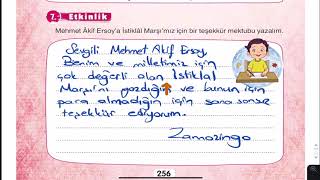 7. Etkinlik
Mehmet Âkif Ersoy'a İstiklâl Marşı'mız için bir teşekkür mektubu yazalım.
Sevgili Mehmet Akif Ersoy,
Benim ve milletimiz için
çok değerli olan İstiklal
Marşını yazdığın ve bunun için
para almadığın için sana sonsuz
teşekkür ediyorum.
Zamazingo
256